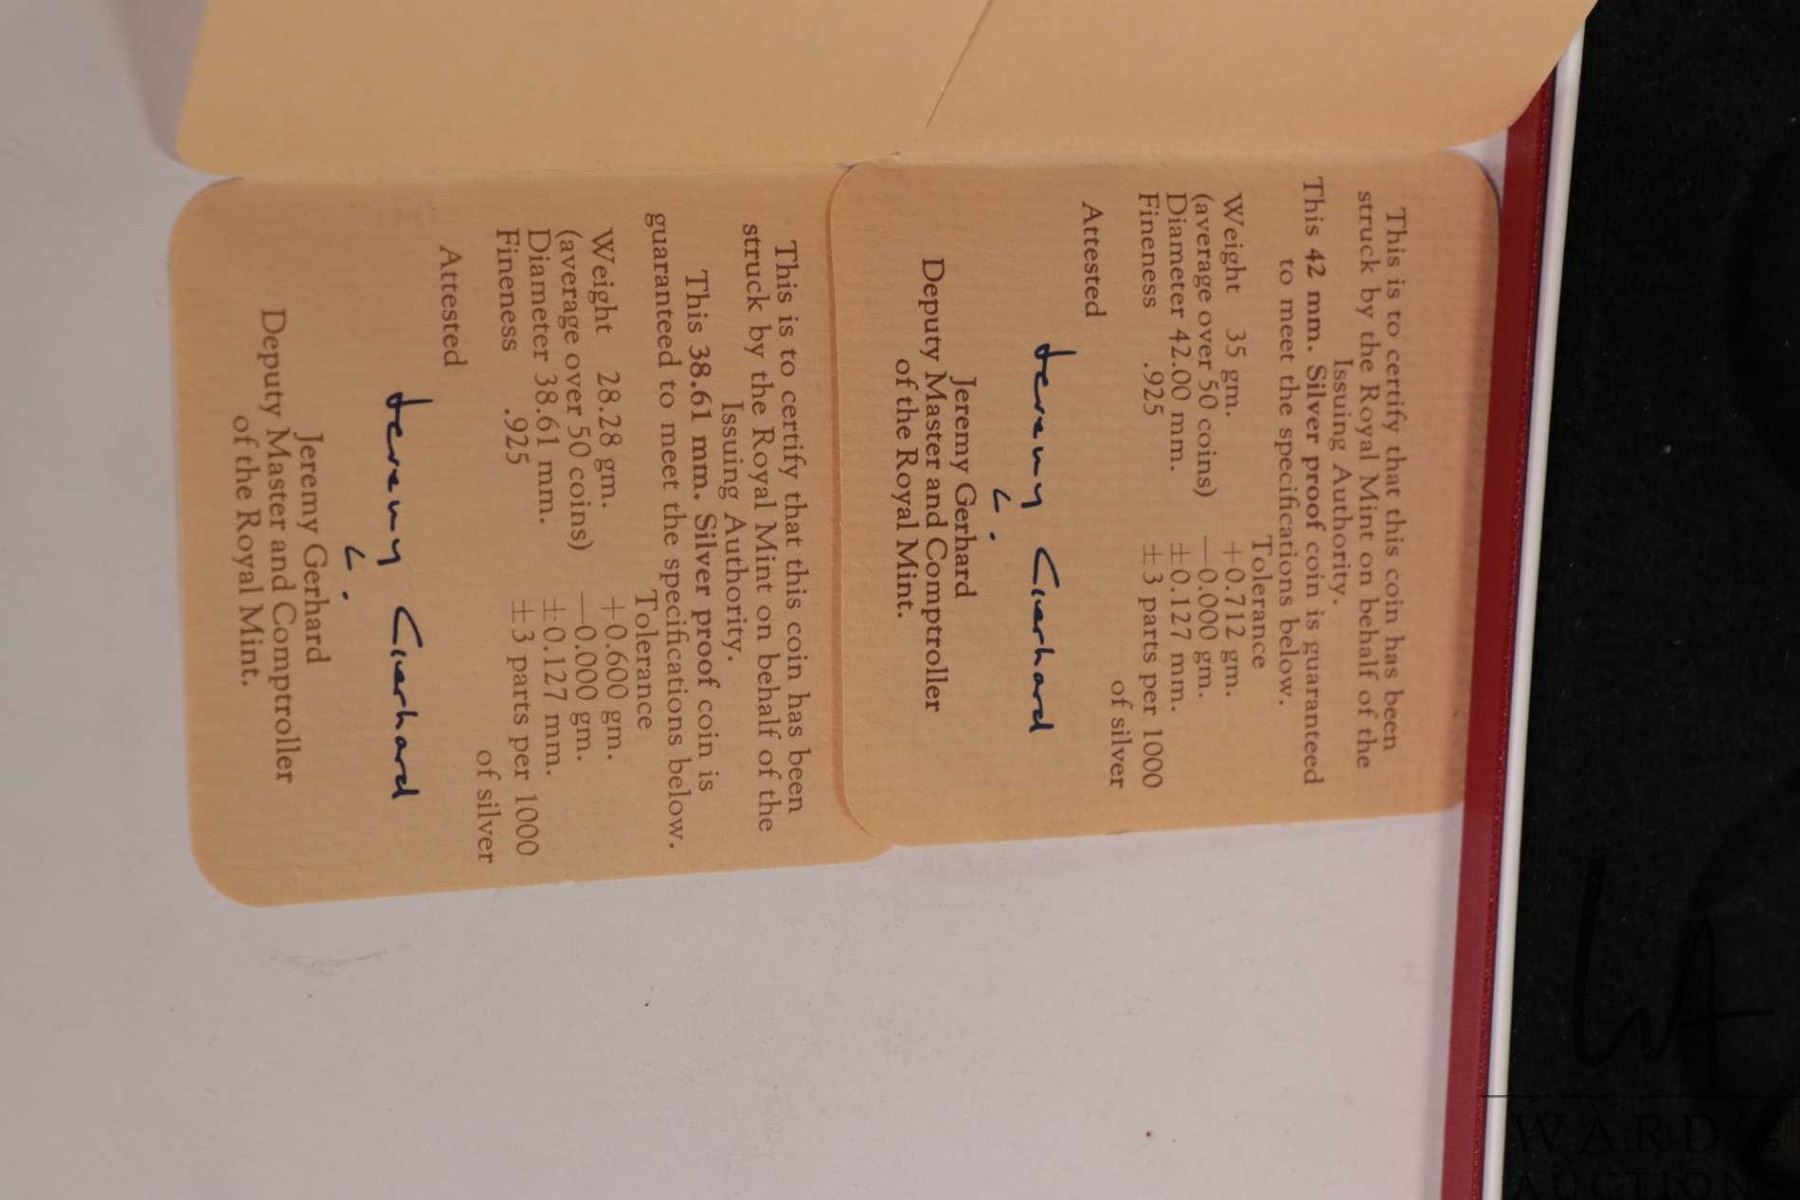 This is to certify that this coin has been
struck by the Royal Mint on behalf of the
Issuing Authority.
This 42 mm. Silver proof coin is guaranteed
to meet the specifications below.
Tolerance
Weight 35 gm. +0.712 gm.
(average over 50 coins) —0.000 gm.
Diameter 42.00 mm. ±0.127 mm.
Fineness .925 ±3 parts per 1000
of silver
Attested
Jeremy Gerhard
Jeremy Gerhard
Deputy Master and Comptroller
of the Royal Mint.
This is to certify that this coin has been
struck by the Royal Mint on behalf of the
Issuing Authority.
This 38.61 mm. Silver proof coin is
guaranteed to meet the specifications below.
Tolerance
Weight 28.28 gm. +0.600 gm.
(average over 50 coins) —0.000 gm.
Diameter 38.61 mm. ±0.127 mm.
Fineness .925 ±3 parts per 1000
of silver
Attested
Jeremy Gerhard
Jeremy Gerhard
Deputy Master and Comptroller
of the Royal Mint.
WA
WARD'S
AUCTIONS